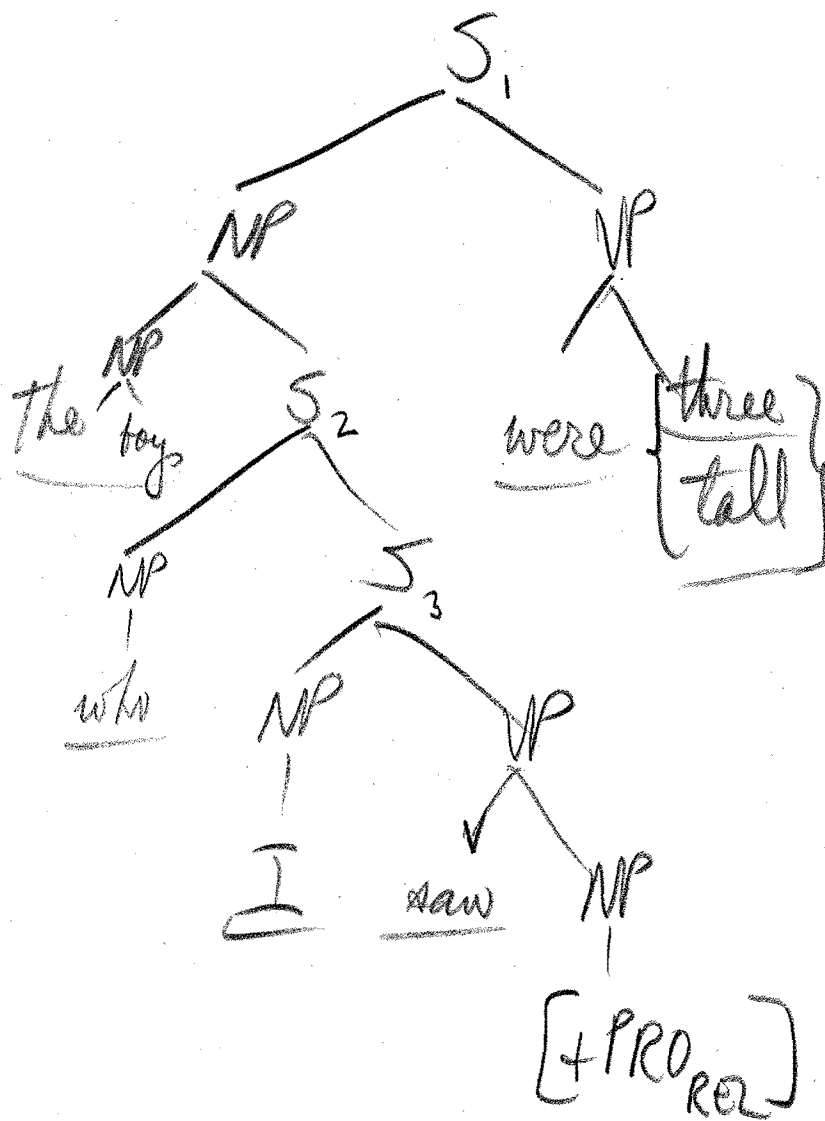 S1
NP VP
NP S2
The boys were { three
tall }
NP S3
who NP VP
I V
saw NP
[+PRO REL]